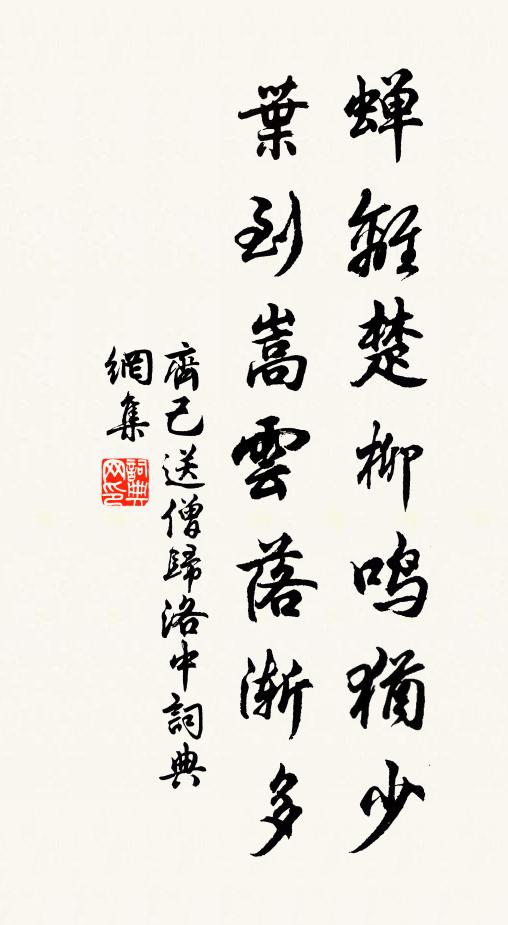 蟬離楚柳鳴猶少
葉到嵩雲落漸多
齊己送僧歸洛中詞典
網集
詞典网印